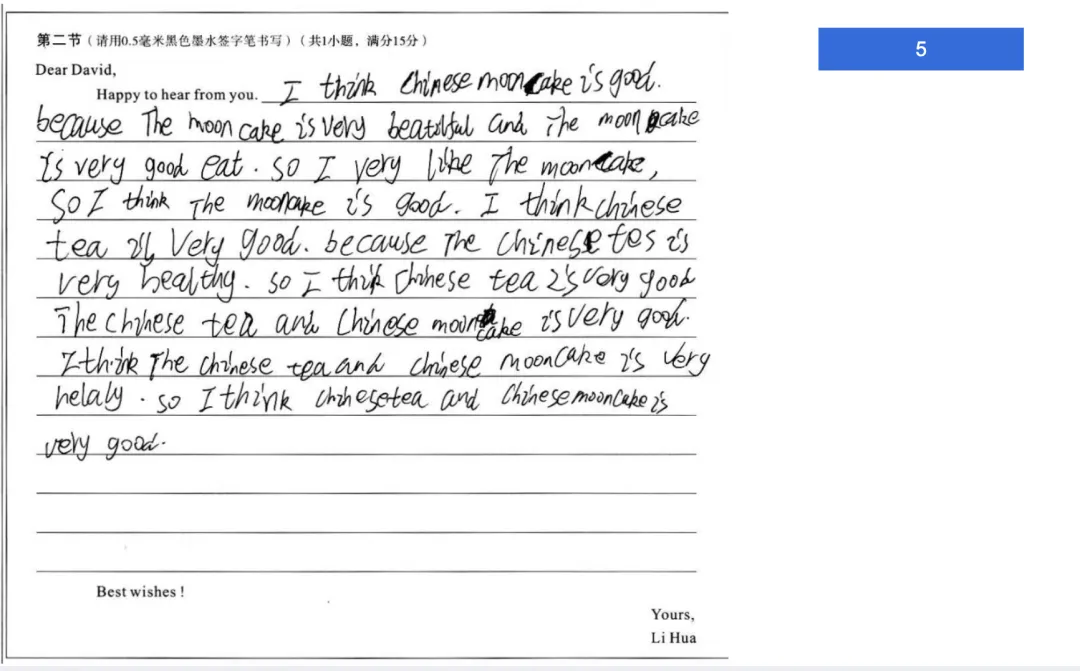 第二节（请用0.5毫米黑色墨水签字笔书写）（共1小题，满分15分）
5
Dear David,
Happy to hear from you. I think Chinese mooncake is good.
because The moon cake is very beatilful and The moon cake
is very good eat. so I very like The mooncake,
So I think The mooncake is good. I think chinese
tea is very good. because The chinese tes is
very healthy. so I think Chinese tea is very good
The chinese tea and Chinese mooncake is very good.
I think The chinese tea and chinese mooncake is very
helaly. so I think chinese tea and Chinese mooncake is
very good.
Best wishes !
Yours,
Li Hua